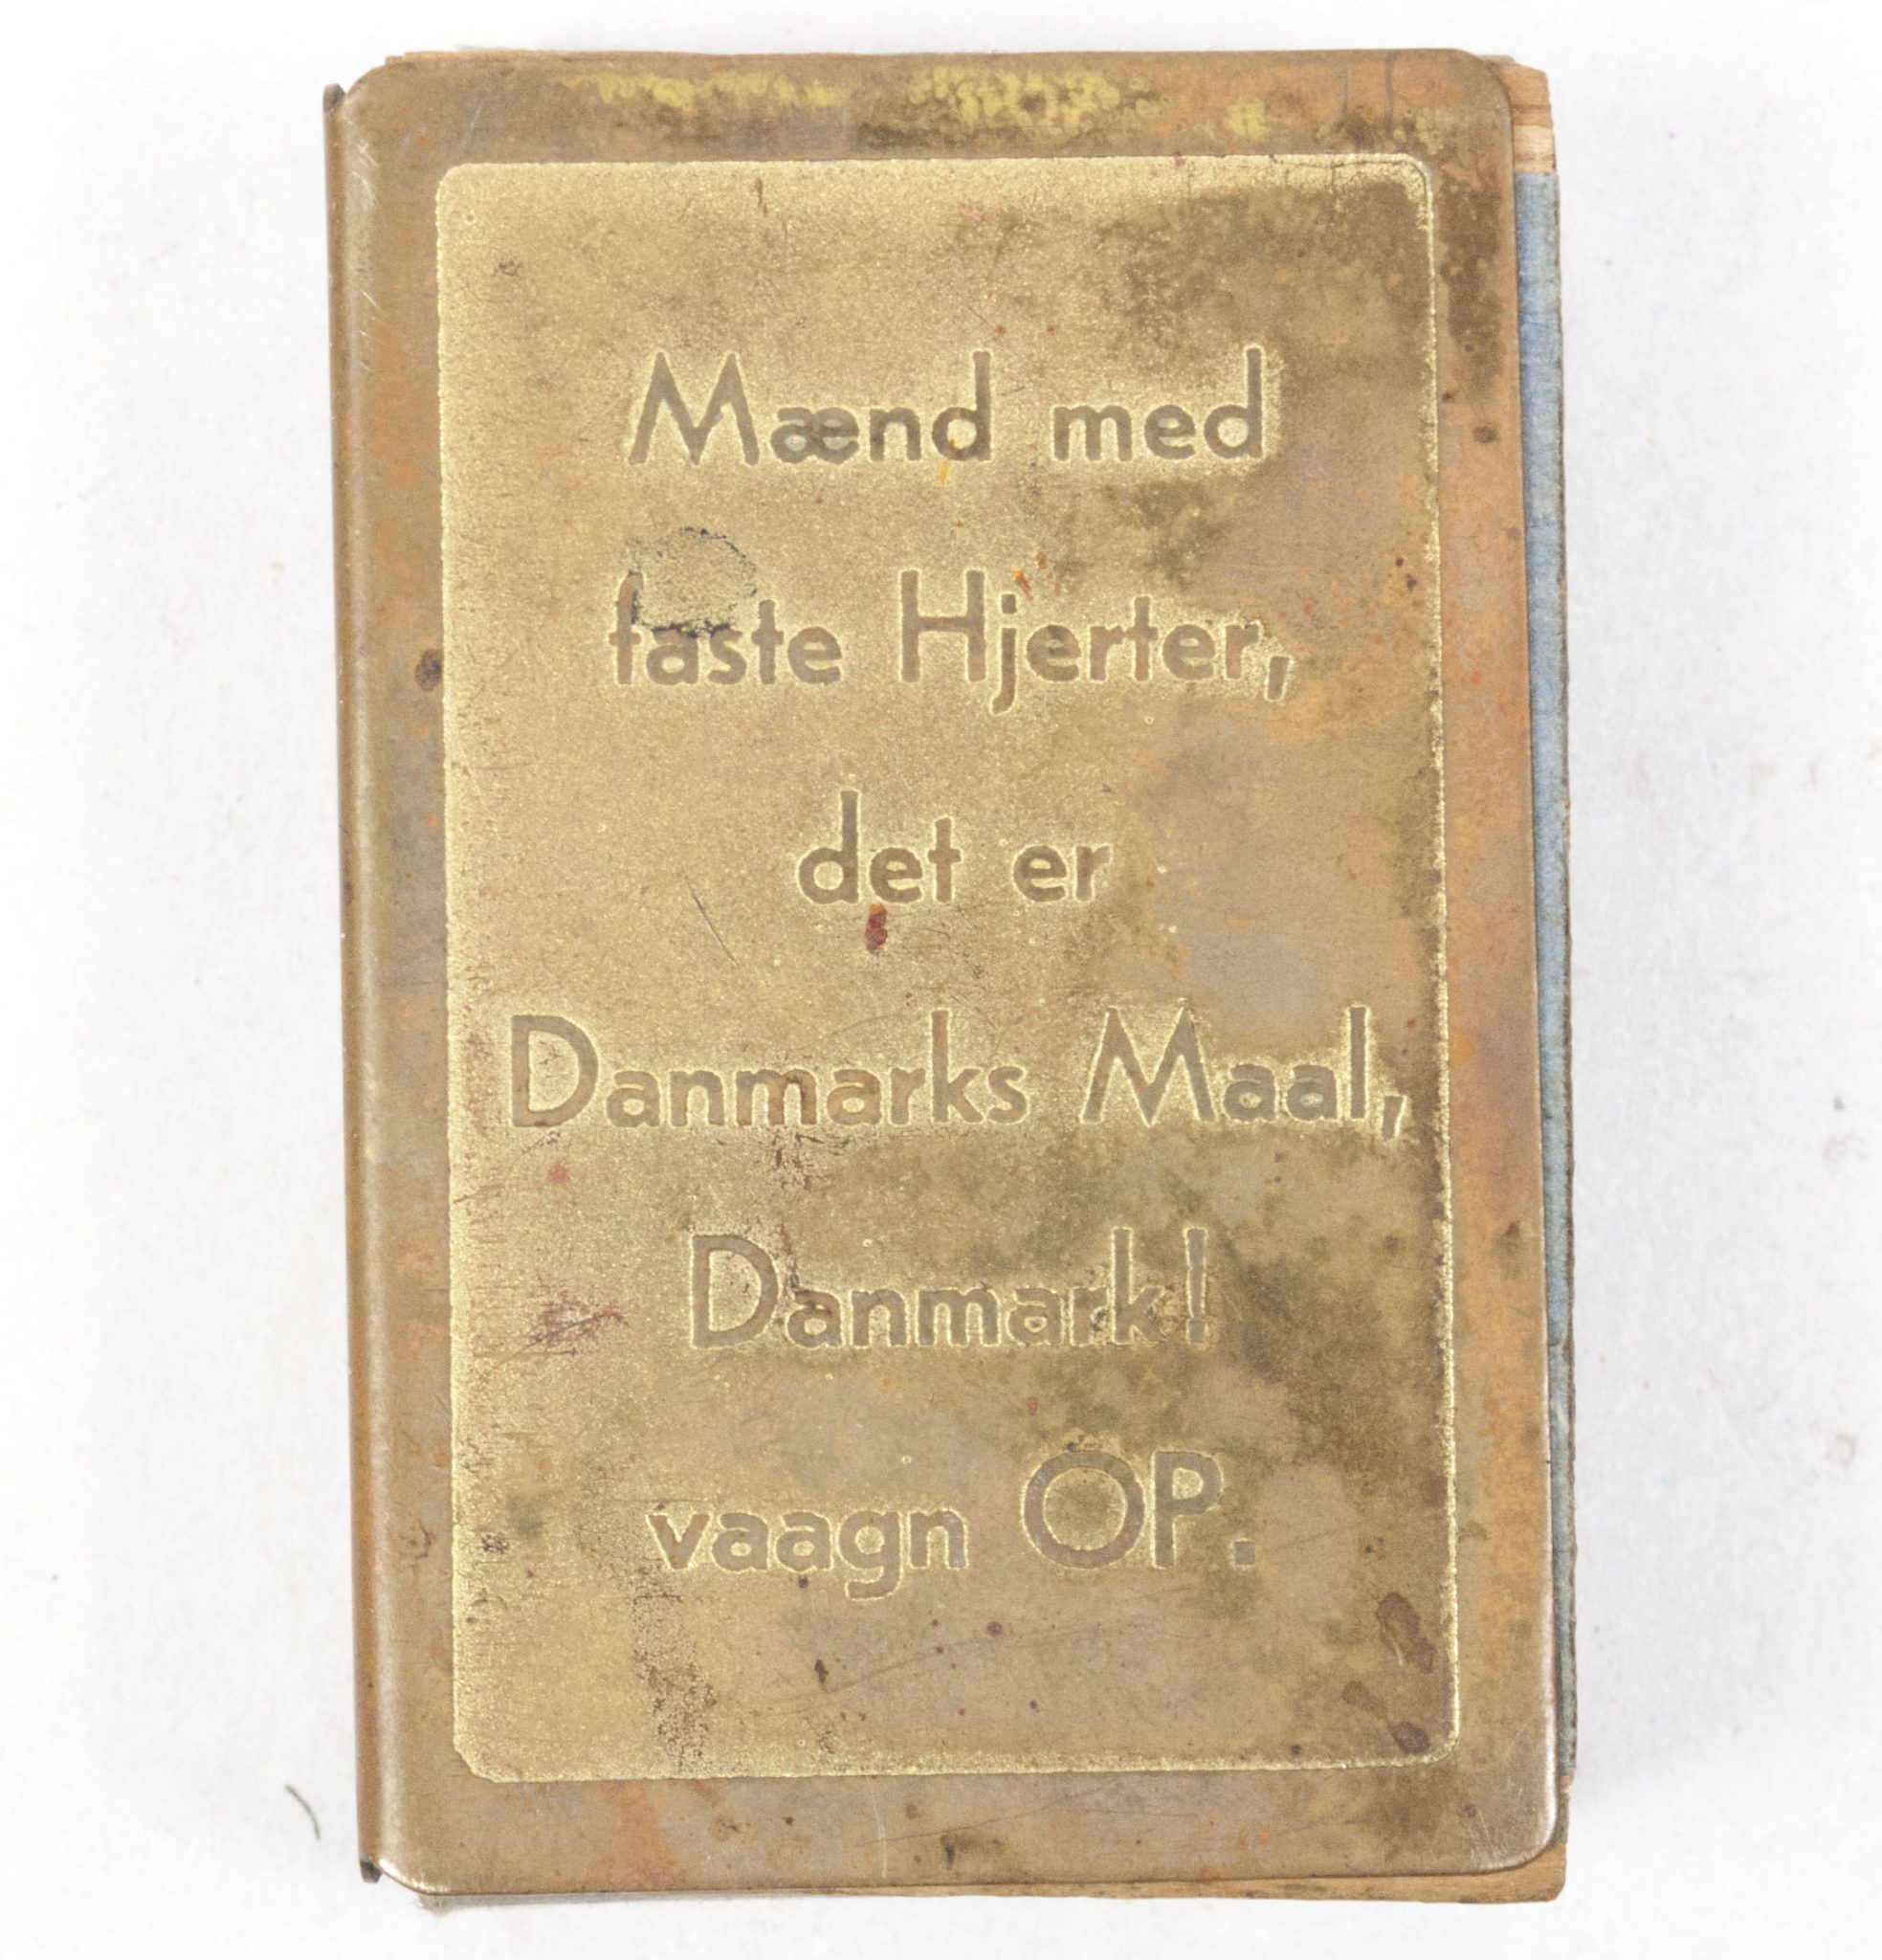 Mænd med
faste Hjerter,
det er
Danmarks Maal,
Danmark!
vaagn OP.